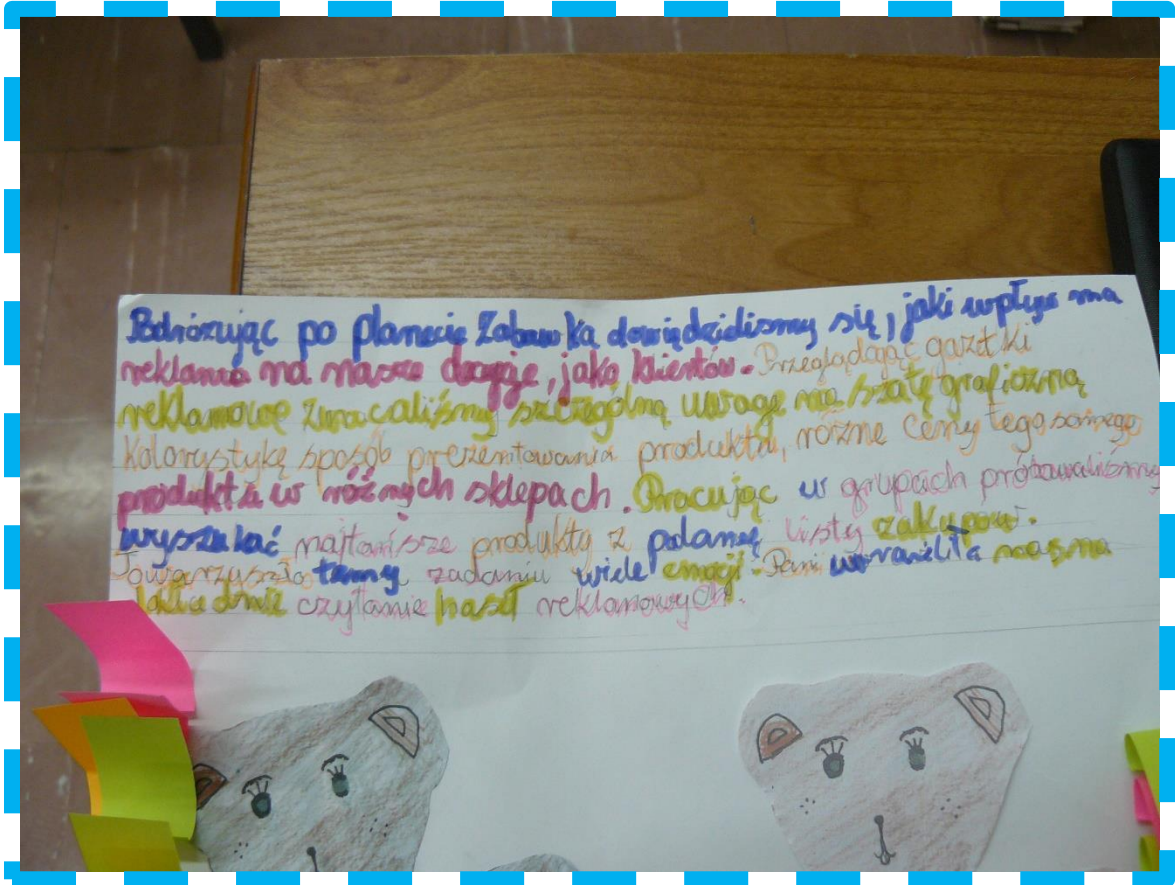 Podróżując po planecie Zabawka dowiedzieliśmy się, jaki wpływ ma
reklama na nasze decyzje, jako klientów. Przeglądając gazetki
reklamowe zwracaliśmy szczególną uwagę na szatę graficzną
kolorystykę sposób prezentowania produktu, różne ceny tego samego
produktu w różnych sklepach. Pracując w grupach próbowaliśmy
wyszukać najtańsze produkty z podanej listy zakupów.
Towarzyszło temu zadaniu wiele emocji. Pani uwrażliwiła nas na
dokładnie czytanie haseł reklamowych.